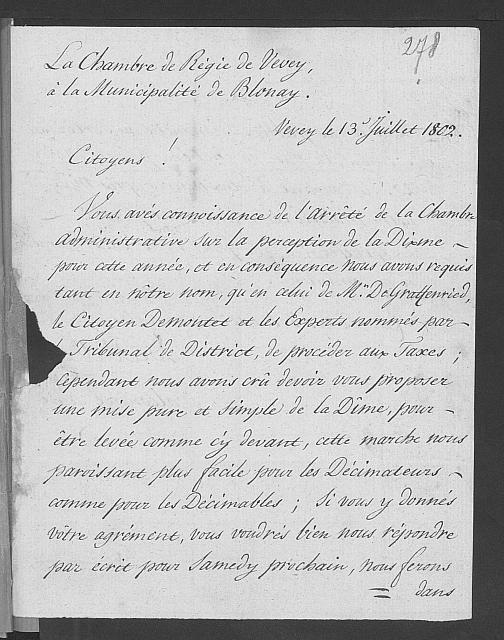 278
La Chambre de Régie de Vevey,
à la Municipalité de Blonay.
Vevey le 13.e Juillet 1802.
Citoyens !
Vous avés connoissance de l'arrêté de la Chambre
administrative sur la perception de la Dixme –
pour cette année, et en conséquence nous avons requis
tant en nôtre nom, qu'en celui de Mr. De Graffenried,
le Citoyen Demontet et les Experts nommés par –
Tribunal de District, de procéder aux Taxes ;
Cependant nous avons crû devoir vous proposer
une mise pure et simple de la Dîme, pour –
être levée comme cy devant, cette marche nous
paroissant plus facile pour les Décimateurs –
comme pour les Décimables ; si vous y donnés
vôtre agrément, vous voudrés bien nous répondre
par écrit pour Samedy prochain, nous ferons
= dans